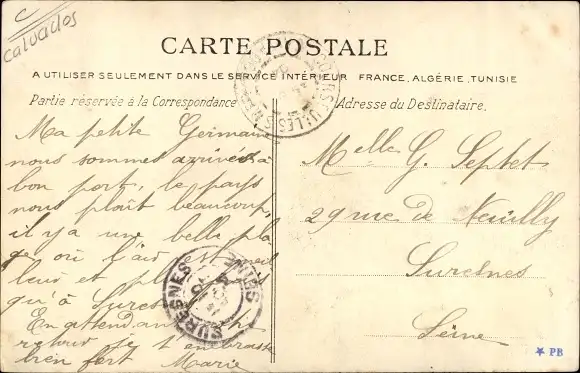 C
Calvados
CARTE POSTALE
A UTILISER SEULEMENT DANS LE SERVICE INTÉRIEUR FRANCE, ALGÉRIE, TUNISIE
Partie réservée à la Correspondance
Adresse du Destinataire.
Ma petite Germain
nous sommes arrivées à
bon port, le pays
nous plaît beaucoup,
il y a une belle pla
ge où l'air est meil
leur et plus
qu'à Sures
En attendant
retour je t'embrasse
bien fort Marie
Melle G. Septet
29 rue de Neuilly
Suresnes
Seine
COURSEULLES
SURESNES
SEINE
PB